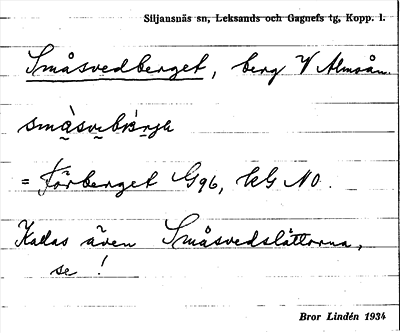 Siljansnäs sn, Leksands och Gagnefs tg, Kopp. l.
Småsvedberget, berg V Almoån.
= Förberget G96, kG NO.
Kallas även Småsvedslåttorna,
se !
Bror Lindén 1934